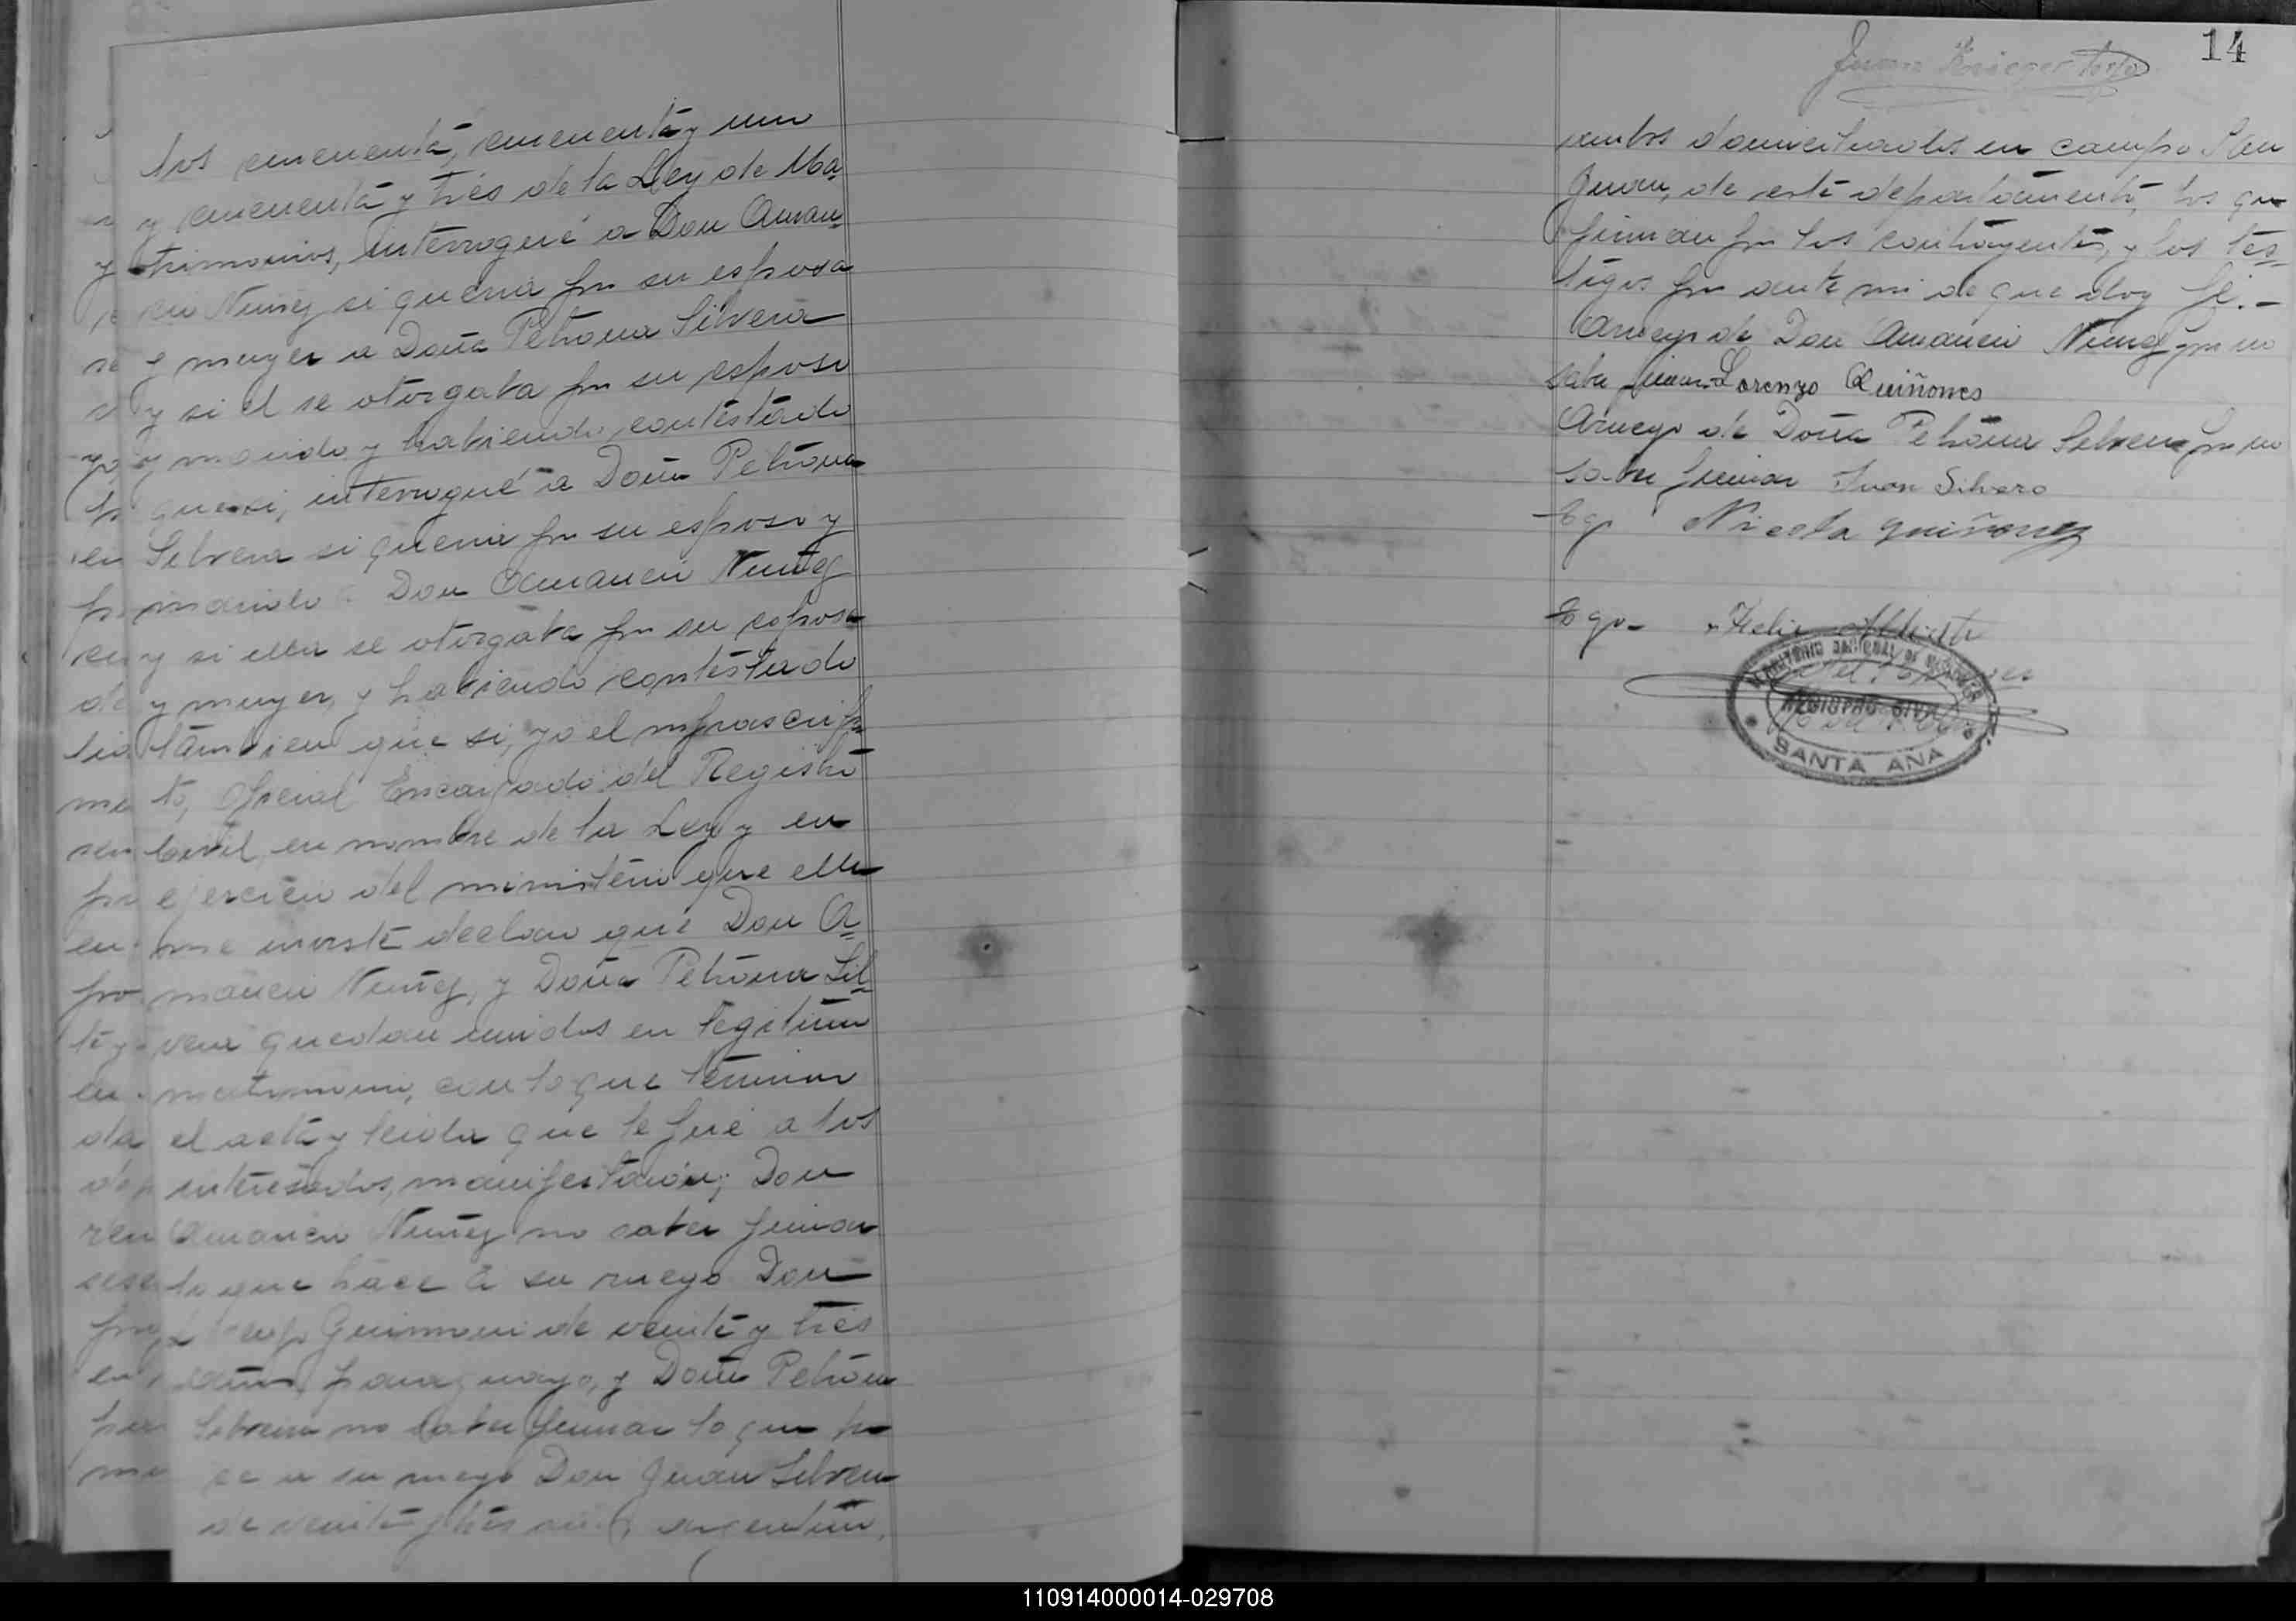 los cincuenta, cincuenta y uno
y cincuenta y tres de la Ley de Ma-
trimonios, interrogué a Don Aman-
cio Nuñez si queria por su esposa
y muger a Doña Petrona Silvera
y si el se otorgaba por su esposo
y marido y habiendo contestado
que si, interrogué a Doña Petrona
Silvera si queria por su esposo y
marido a Don Amancio Nuñez
y si ella se otorgaba por su esposa
y muger, y habiendo contestado
tambien que si, yo el infrascrip-
to, Oficial Encargado del Registro
Civil, en nombre de la Ley y en
ejercicio del ministerio que ella
me inviste declaro que Don A-
mancio Nuñez, y Doña Petrona Sil-
vera quedan unidos en legitimo
matrimonio, con lo que termina
el acta y leida que le fue a los
interesados, manifestaron; Don
Amancio Nuñez no saber firmar
lo que hace a su ruego Don
de veinte y tres
años, paraguayo, y Doña Petrona
Silvera no saber firmar lo que ha-
ce a su ruego Don Juan Silvera
de veinte y tres años, argentino,
14
ambos domiciliados en campo San
Juan, de este departamento, los que
firman por los contrayentes, y los tes-
tigos por ante mi de que doy fé.-
Aruego de Don Amancio Nuñez por no
saber firmar Lorenzo Quiñones
Aruego de Doña Petrona Silvera por no
saber firmar Juan Silvero
Tgo Nicola quiñonez
Tgo- Felix
TERRITORIO NACIONAL DE MISIONES
REGISTRO CIVIL
SANTA ANA
110914000014-029708